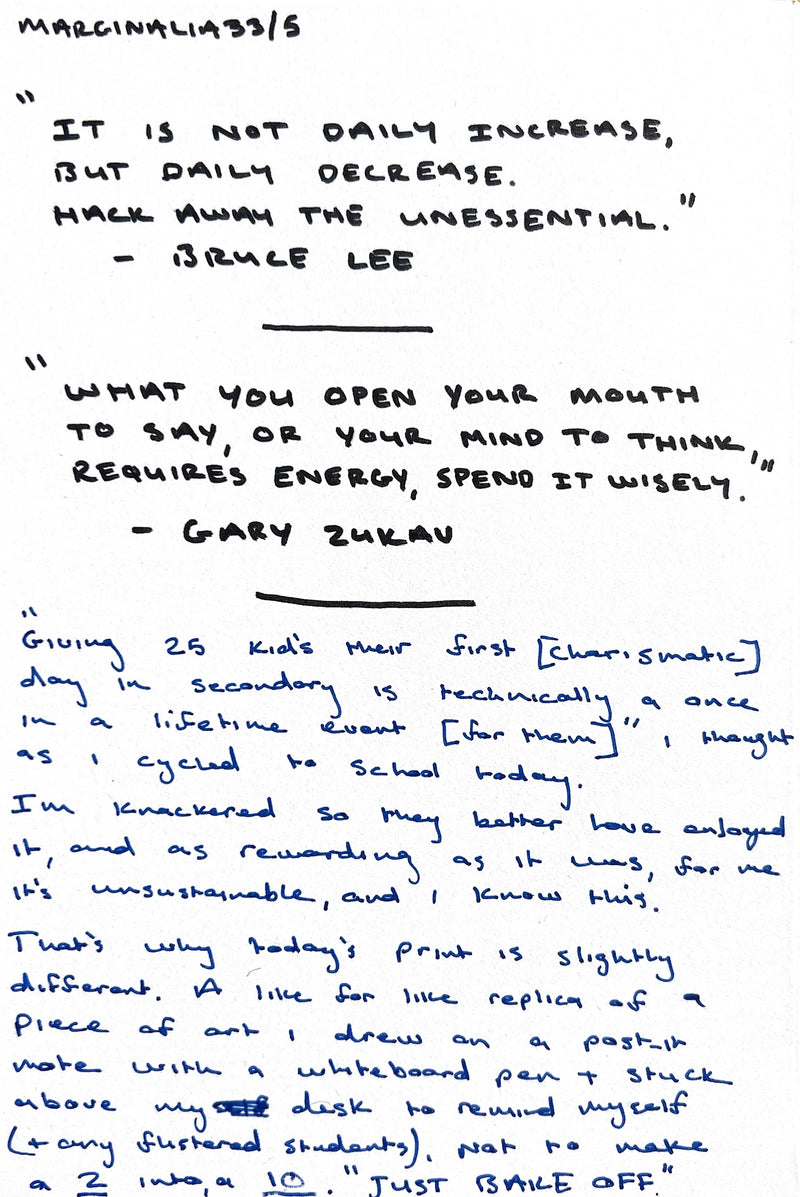 MARGINALIA33/5
"
IT IS NOT DAILY INCREASE,
BUT DAILY DECREASE.
HACK AWAY THE UNESSENTIAL."
- BRUCE LEE
"
WHAT YOU OPEN YOUR MOUTH
TO SAY, OR YOUR MIND TO THINK,
REQUIRES ENERGY, SPEND IT WISELY."
- GARY ZUKAV
"
Giving 25 kid's their first [charismatic]
day in secondary is technically a once
in a lifetime event [for them]" i thought
as i cycled to school today.
I'm knackered so they better have enjoyed
it, and as rewarding as it was, for me
it's unsustainable, and i know this.
That's why today's print is slightly
different. A like for like replica of a
piece of art i drew on a post-it
note with a whiteboard pen + stuck
above my desk to remind myself
(+ any flustered students). Not to make
a 2 into, a 10. "JUST BAKE OFF"